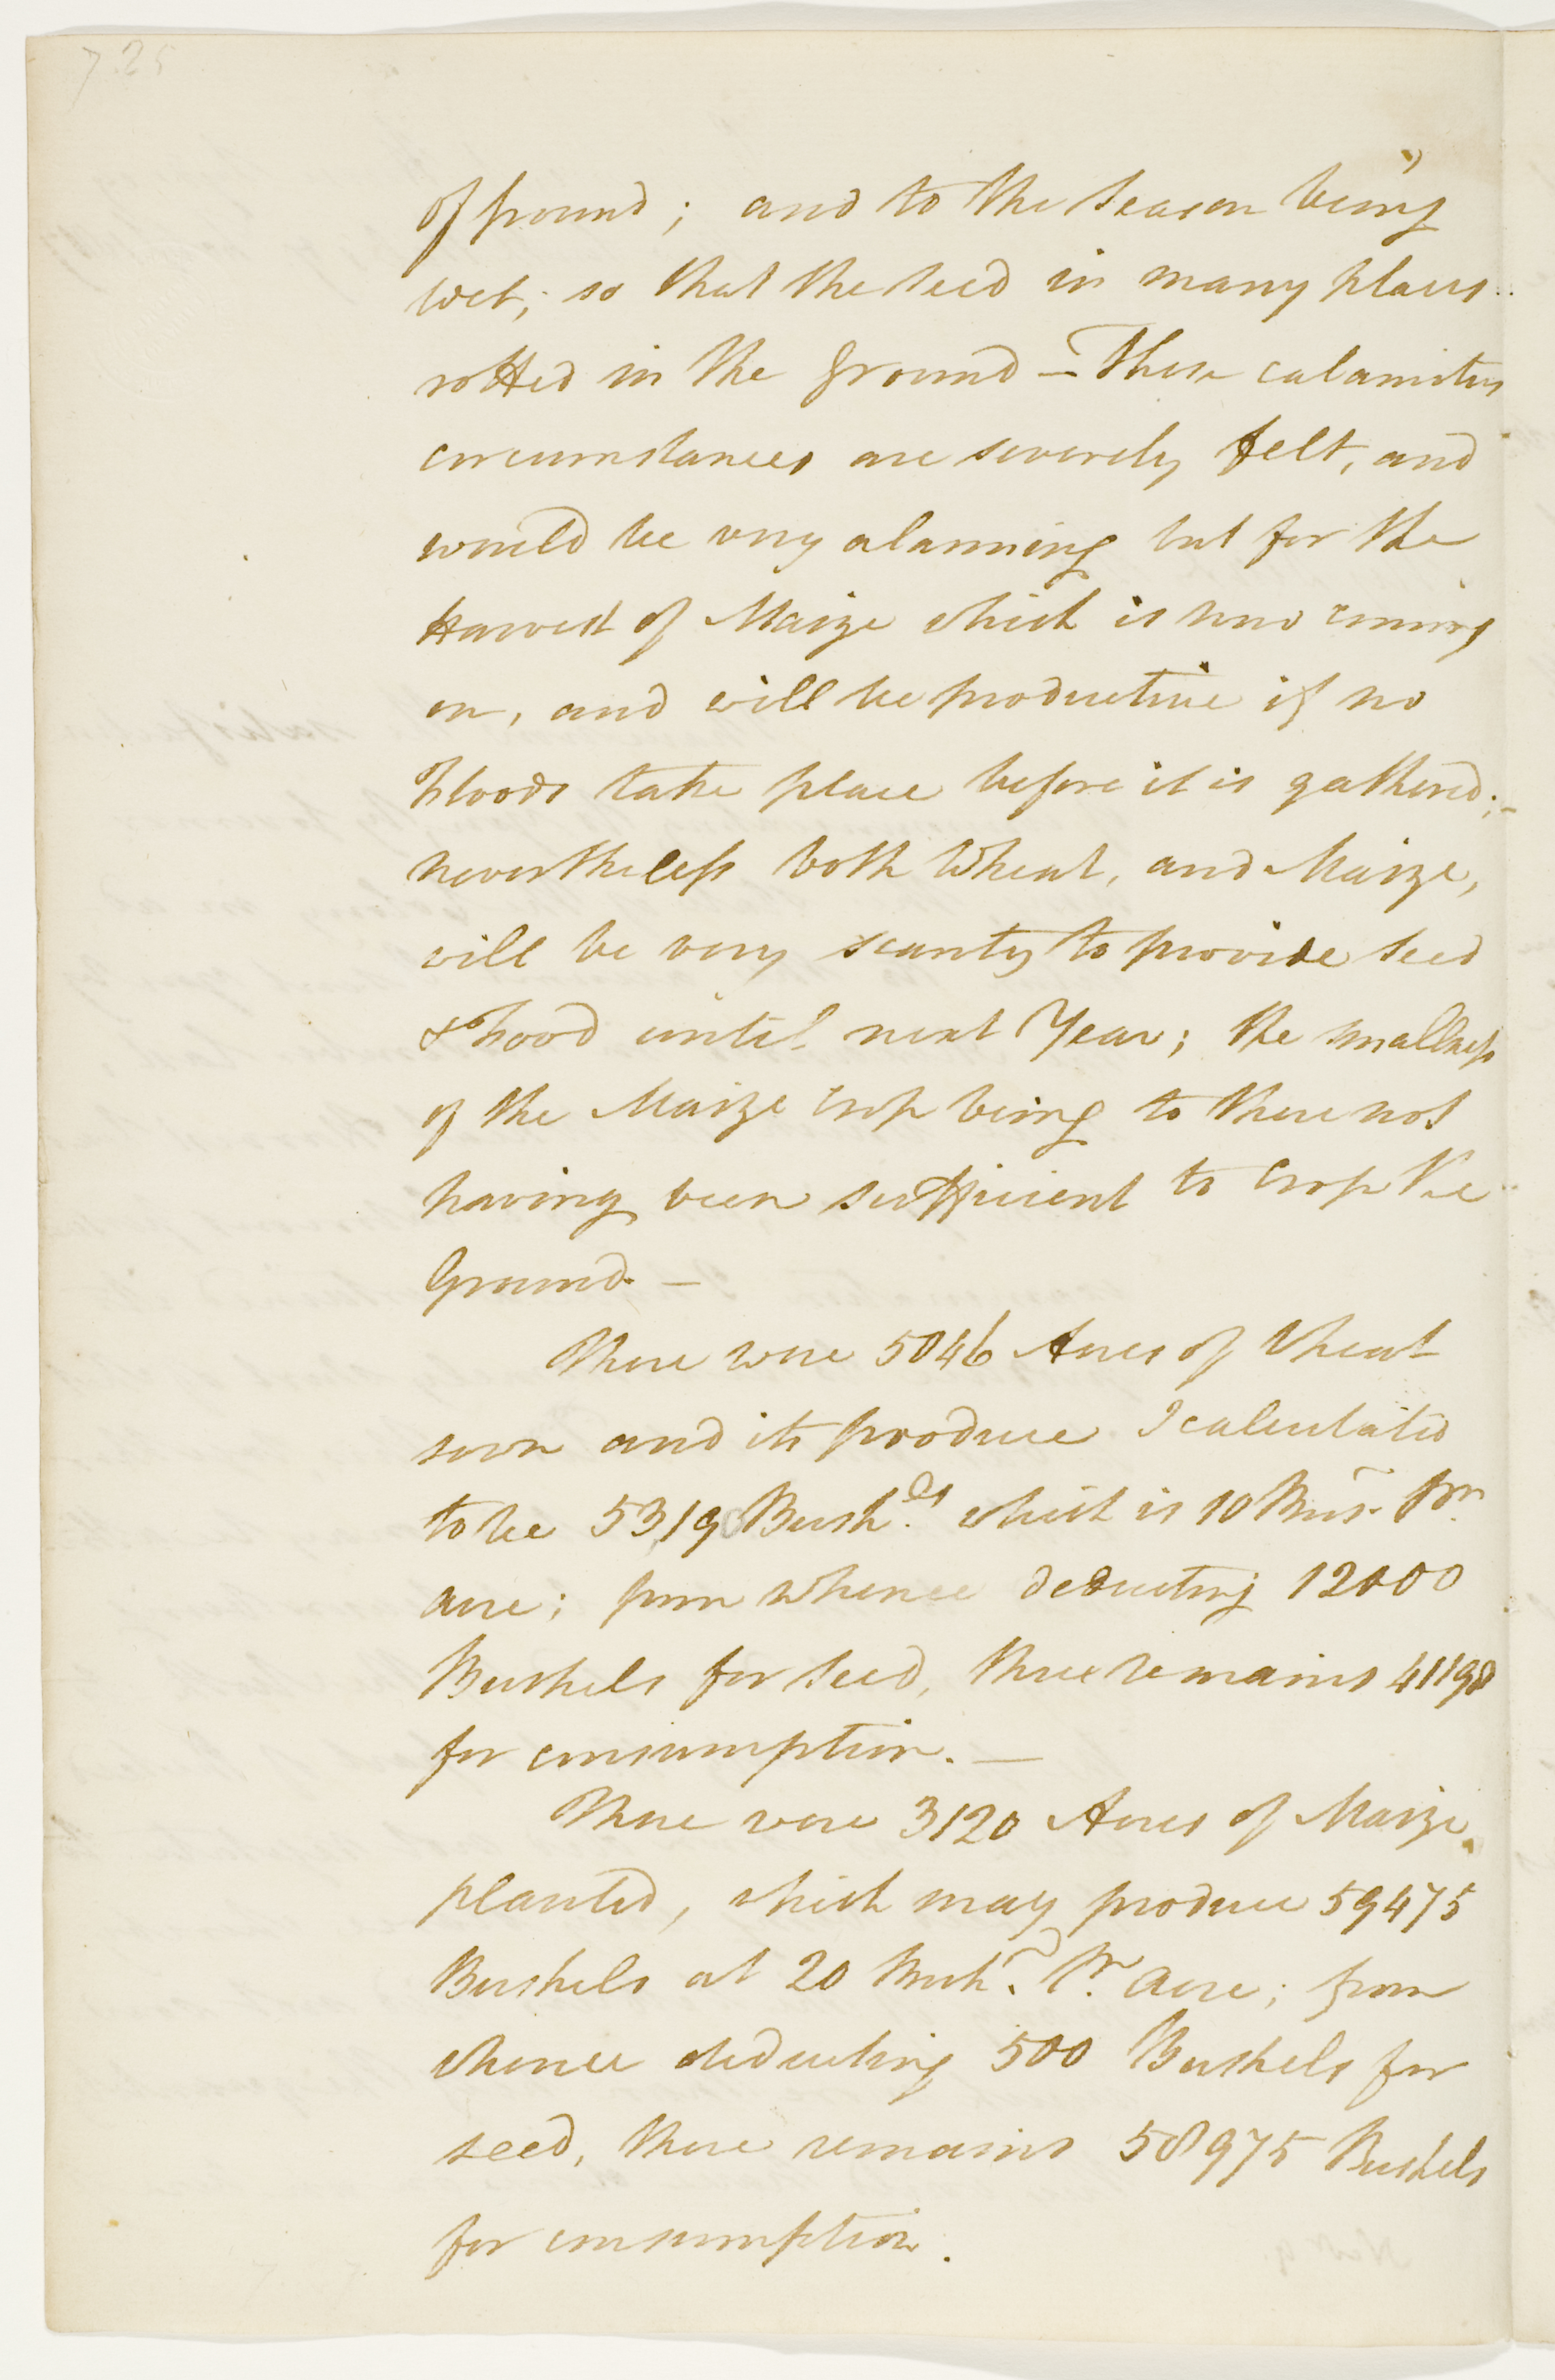 725
of ground; and to the Season being
wet; so that the seed in many places
rotted in the Ground — These calamitus
circumstances are severely felt, and
would be very alarming but for the
Harvest of Maize which is now coming
on, and will be productive if no
Floods take place before it is gathered;
nevertheless both Wheat, and Maize,
will be very scanty to provide seed
& Food until next Year; the smallness
of the Maize Crop being to there not
having been sufficient to Crop the
Ground. —
There were 5046 Acres of Wheat
sown and its produce I calculated
to be 5319 Bush.els which is 10 Bus. Pr.
acre; from whence deducting 12000
Bushels for seed, there remains 41198
for consumption. —
There were 3120 Acres of Maize
planted, which may produce 59475
Bushels at 20 Bush. Pr. acre; from
whence deducting 500 Bushels for
seed, there remains 58975 Bushels
for consumption.